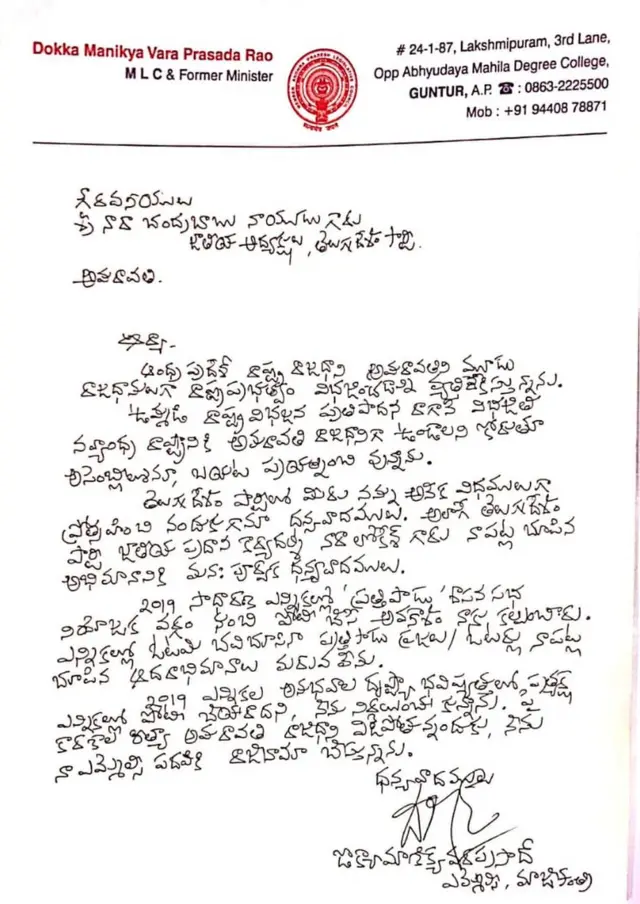 Dokka Manikya Vara Prasada Rao
M L C & Former Minister
# 24-1-87, Lakshmipuram, 3rd Lane,
Opp Abhyudaya Mahila Degree College,
GUNTUR, A.P. ☎ : 0863-2225500
Mob : +91 94408 78871
గౌరవనీయులు
శ్రీ నారా చంద్రబాబు నాయుడు గారు
జాతీయ అధ్యక్షులు, తెలుగుదేశం పార్టీ.
అమరావతి.
ఆర్యా.
ఆంధ్రప్రదేశ్ రాష్ట్ర రాజధాని అమరావతిని మూడు
రాజధానులుగా రాష్ట్రప్రభుత్వం విభజించడాన్ని వ్యతిరేకిస్తున్నాను.
ఉమ్మడి రాష్ట్ర విభజన ప్రతిపాదన రాగానే విభజిత
నవ్యాంధ్ర రాష్ట్రానికి అమరావతి రాజధానిగా ఉండాలని కోరుతూ
అసెంబ్లీలోనూ, బయట ప్రయత్నించి వున్నాను.
తెలుగుదేశం పార్టీలో మీరు నన్ను అనేక విధములుగా
ప్రోత్సహించి నందుకుగాను ధన్యవాదములు. అలాగే తెలుగుదేశం
పార్టీ జాతీయ ప్రధాన కార్యదర్శి నారా లోకేశ్ గారు నాపట్ల చూపిన
అభిమానానికి మనః పూర్వక ధన్యవాదములు.
2019 సాధారణ ఎన్నికల్లో 'ప్రత్తిపాడు' శాసన సభ
నియోజక వర్గం నుంచి పోటీ చేసే అవకాశం నాకు కల్పించారు.
ఎన్నికల్లో ఓటమి చవిచూసినా ప్రత్తిపాడు ప్రజలు/ ఓటర్లు నాపట్ల
చూపిన ఆదరాభిమానాలు మరువలేను.
2019 ఎన్నికల అనుభవాల దృష్ట్యా భవిష్యత్తులో, ప్రత్యక్ష
ఎన్నికలలో పోటీ చేయరాదని, నేను నిర్ణయించు కున్నాను. పై
కారణాల రీత్యా అమరావతి రాజధాని విడిపోతున్నందుకు, నేను
నా ఎమ్మెల్సీ పదవికి రాజీనామా చేస్తున్నాను.
ధన్యవాదములు
డొక్కా మాణిక్య వరప్రసాద్
ఎమ్మెల్సీ, మాజీమంత్రి